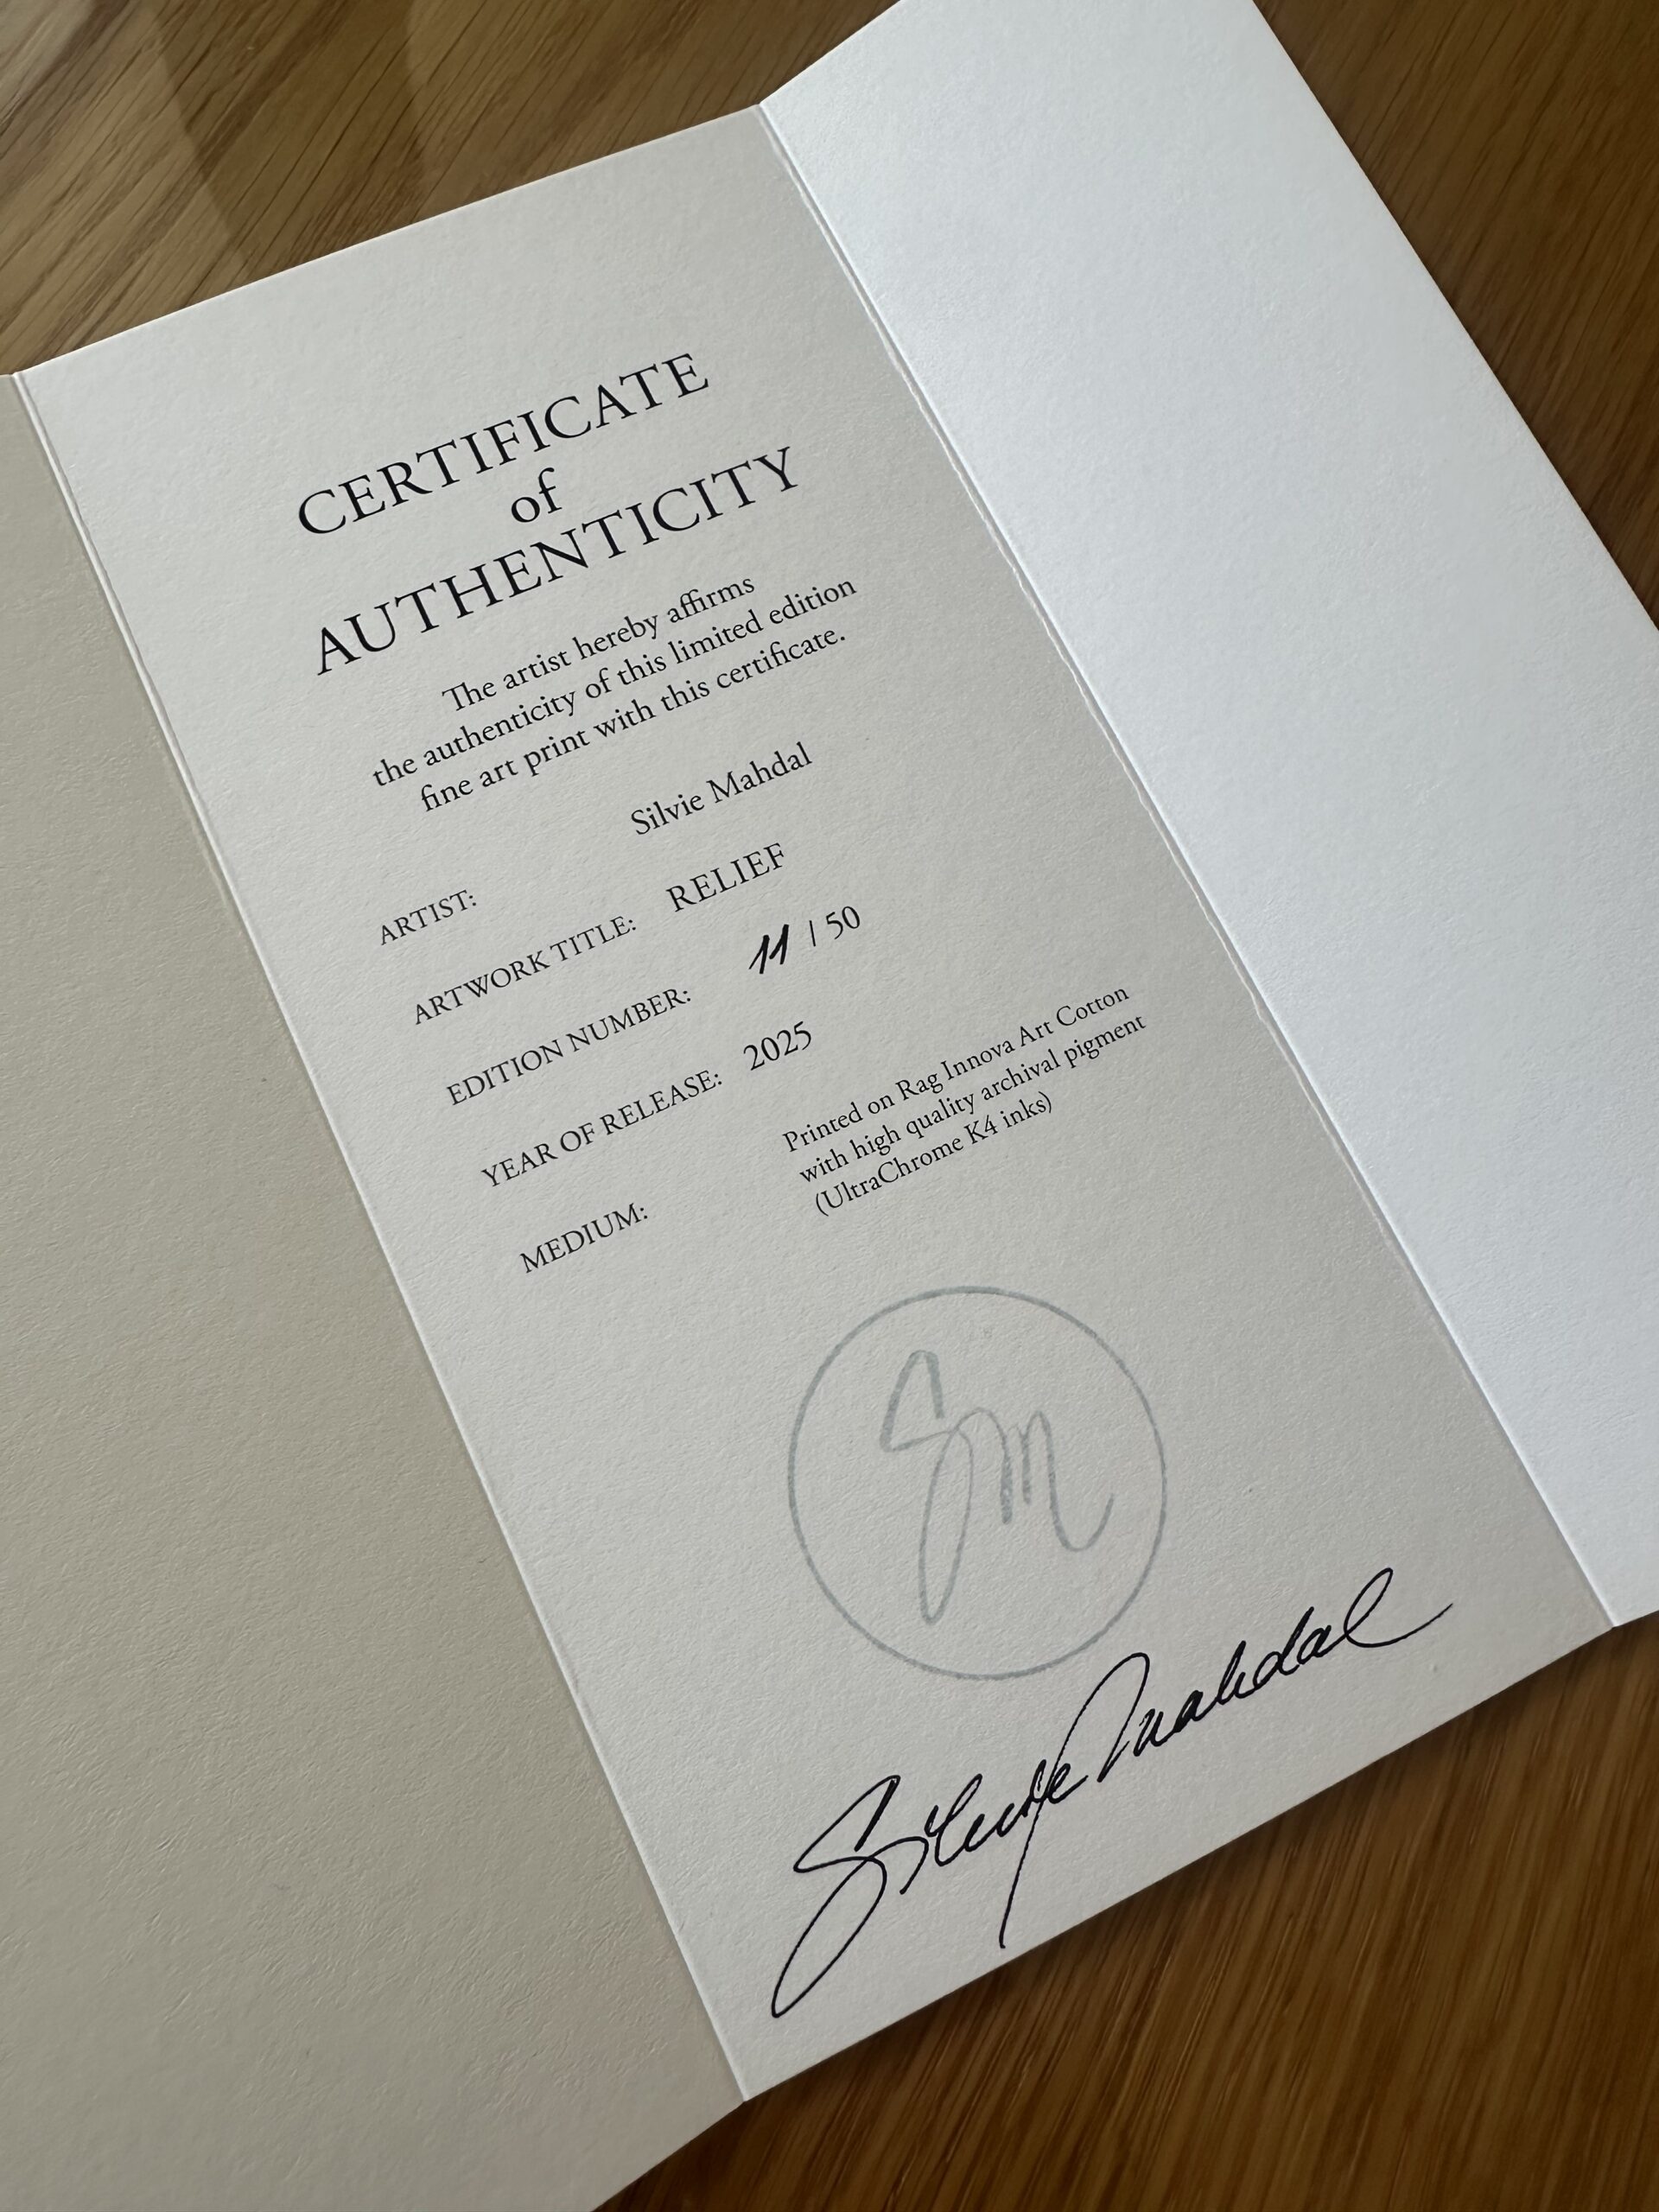 CERTIFICATE
of
AUTHENTICITY
The artist hereby affirms
the authenticity of this limited edition
fine art print with this certificate.
ARTIST: Silvie Mahdal
ARTWORK TITLE: RELIEF
EDITION NUMBER: 11 / 50
YEAR OF RELEASE: 2025
MEDIUM: Printed on Rag Innova Art Cotton
with high quality archival pigment
(UltraChrome K4 inks)
SM
Silvie Mahdal